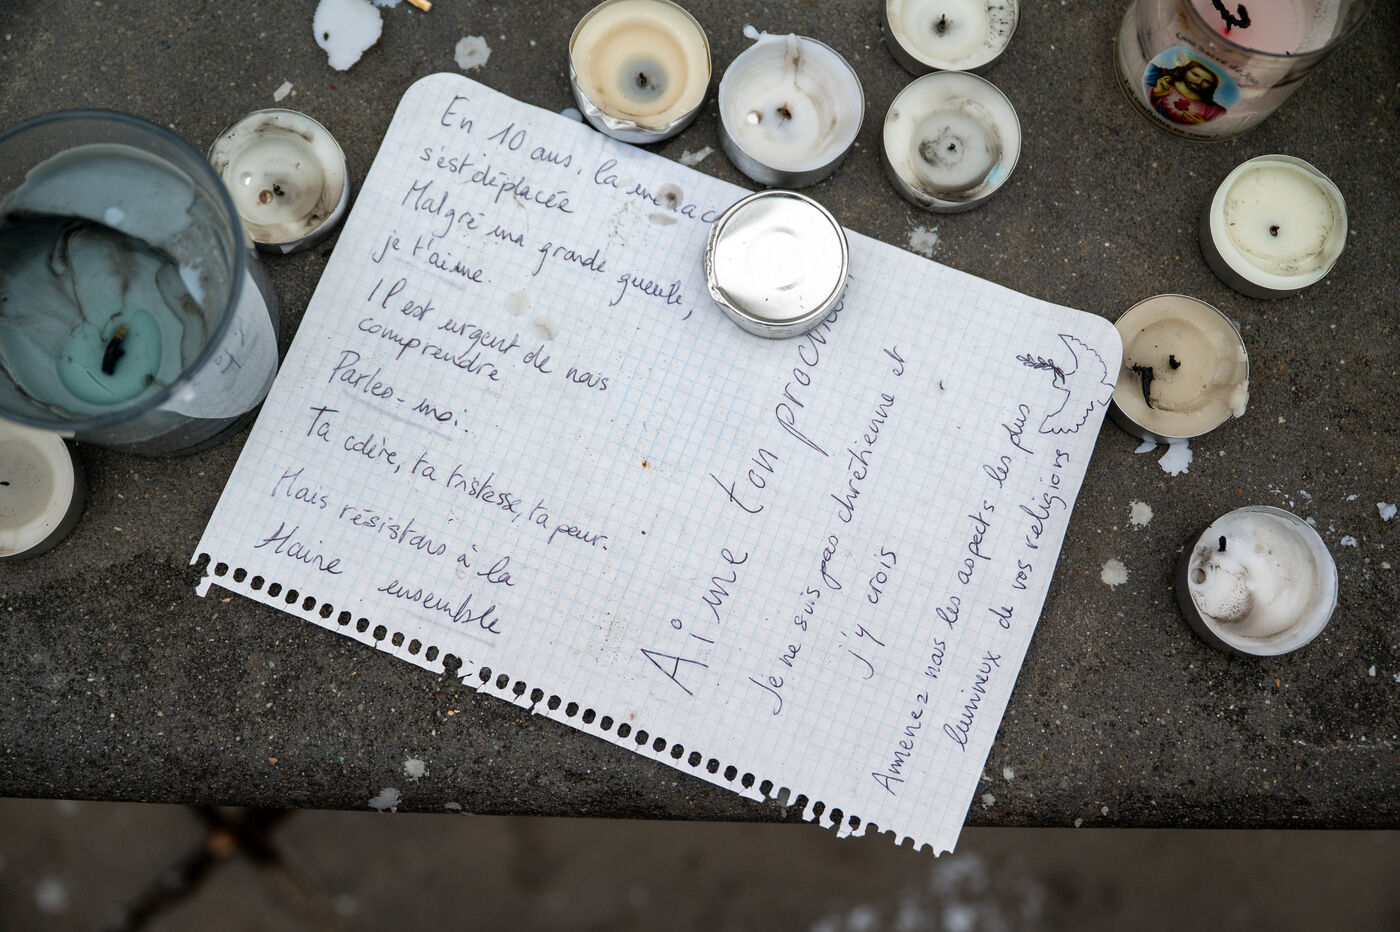 En 10 ans, la menac
s'est déplacée
Malgré ma grande gueule,
je t'aime.
Il est urgent de nous
comprendre
Parles-moi:
Ta colère, ta tristesse, ta peur.
Mais résistons à la
Haine ensemble
Aime ton prochain
Je ne suis pas chrétienne et
j'y crois
Ammenez nous les aspects les plus
lumineux de vos religions